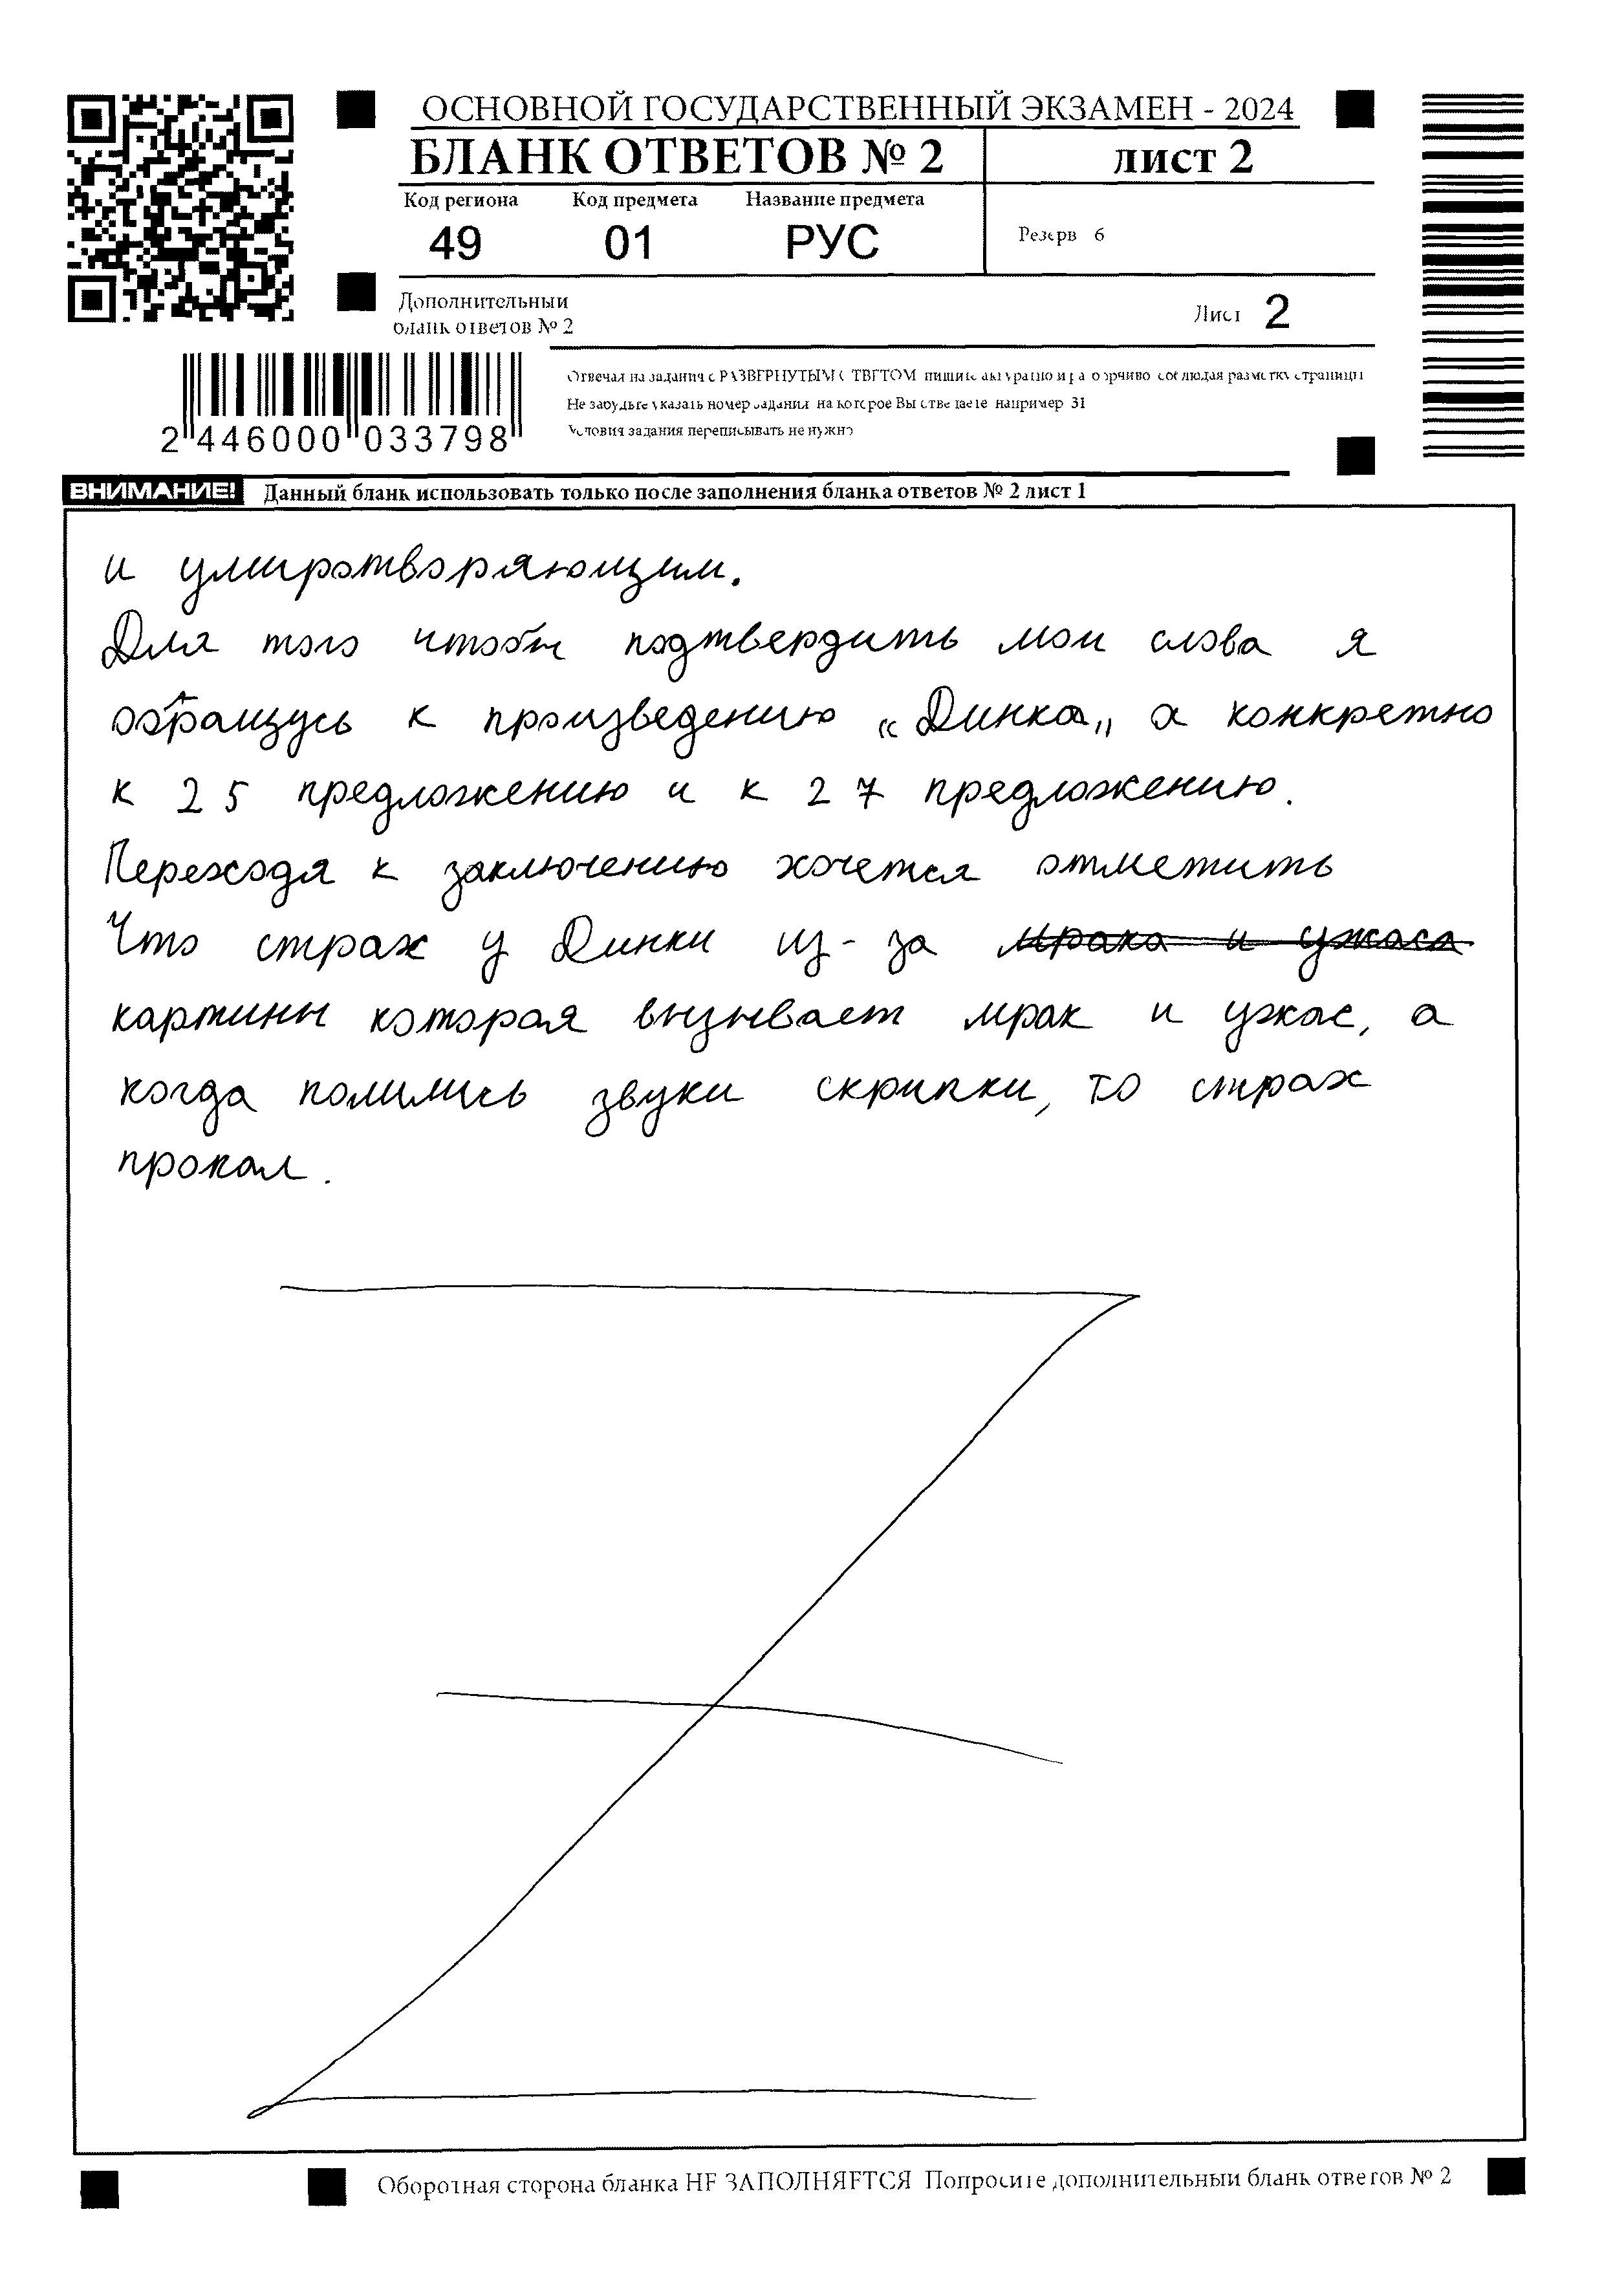 ОСНОВНОЙ ГОСУДАРСТВЕННЫЙ ЭКЗАМЕН - 2024
БЛАНК ОТВЕТОВ № 2 лист 2
Код региона Код предмета Название предмета
49 01 РУС Резерв 6
Дополнительный
бланк ответов № 2
Лист 2
2 446000 033798
Отвечая на задания с РАЗВЕРНУТЫМ ОТВЕТОМ пишите аккуратно и разборчиво соблюдая разметку страницы
Не забудьте указать номер задания на которое Вы отвечаете например 31
Условия задания переписывать не нужно
ВНИМАНИЕ! Данный бланк использовать только после заполнения бланка ответов № 2 лист 1
и умиротворяющим.
Для того чтобы подтвердить мои слова я
обращусь к произведению „Динка„ а конкретно
к 25 предложению и к 27 предложению.
Переходя к заключению хочется отметить
Что страх у Динки из-за мрака и ужаса
картины которая вызывает мрак и ужас, а
когда полились звуки скрипки, то страх
пропал.
Оборотная сторона бланка НЕ ЗАПОЛНЯЕТСЯ Попросите дополнительный бланк ответов № 2